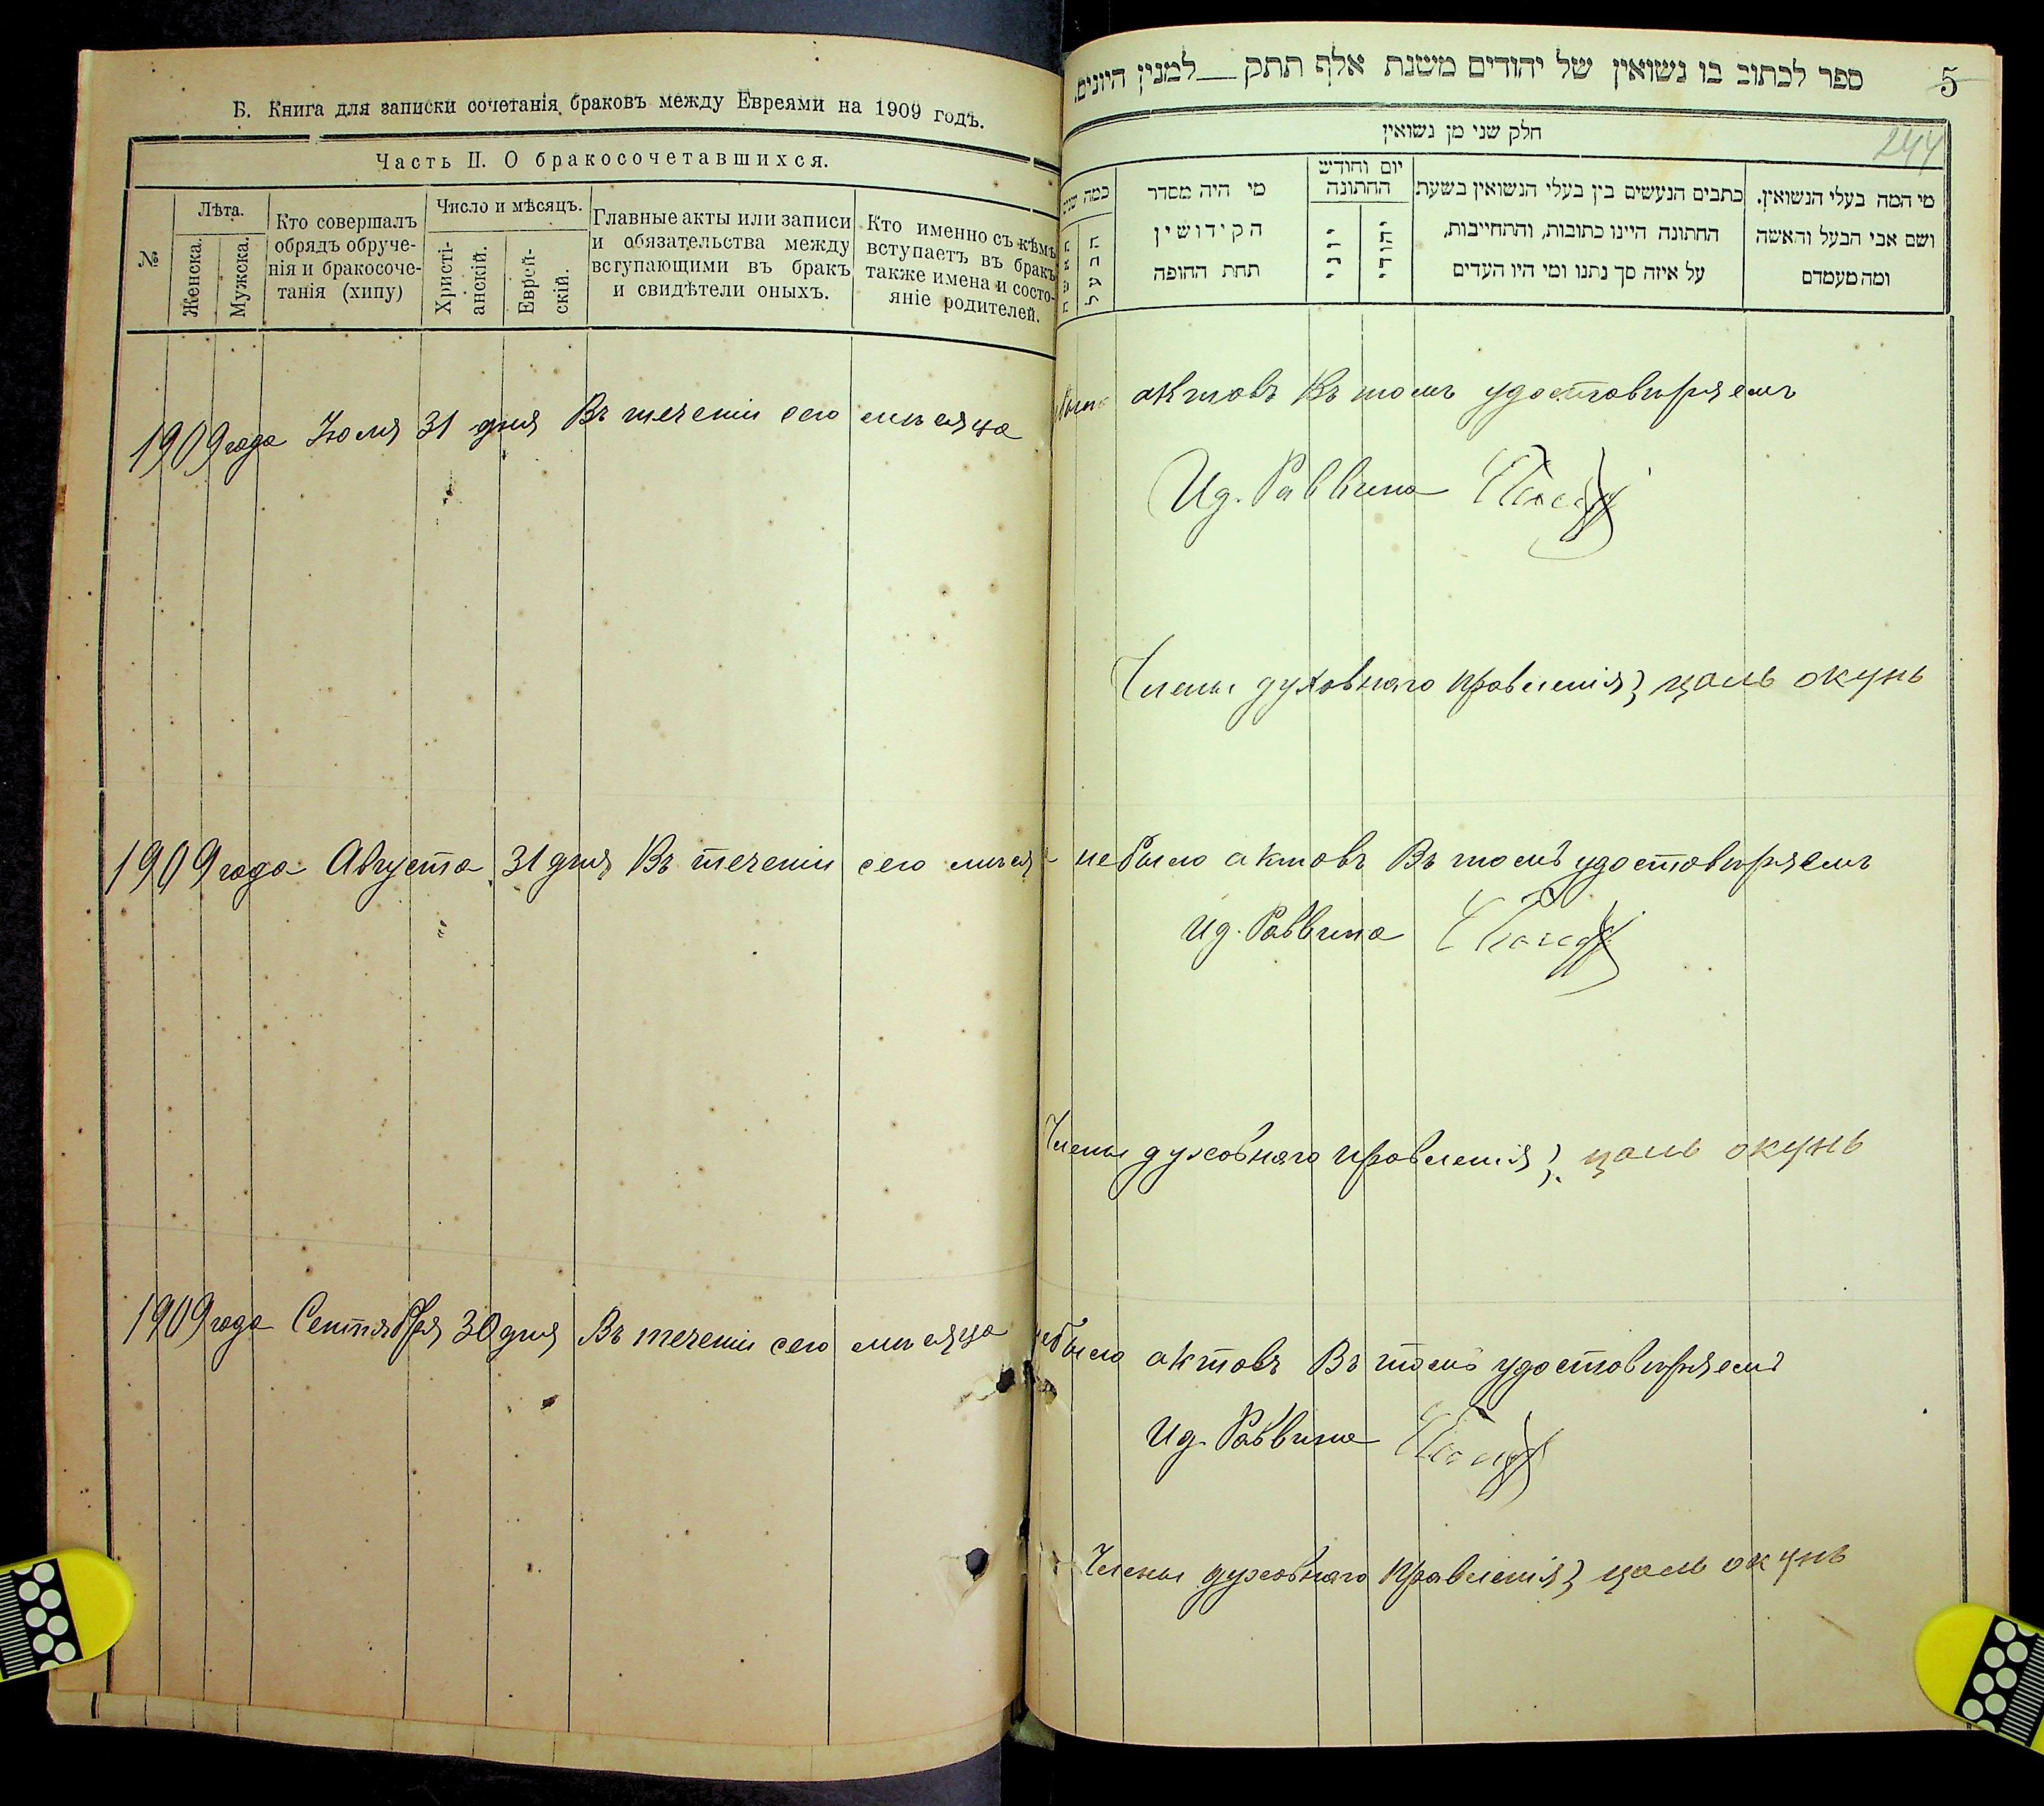 Б. Книга для записки сочетанія браковъ между Евреями на 1909 годъ.
Часть II. О бракосочетавшихся.
№
Лѣта.
Женска.
Мужска.
Кто совершалъ
обрядъ обруче-
нія и бракосоче-
танія (хипу)
Число и мѣсяцъ.
Христі-
анскій.
Еврей-
скій.
Главные акты или записи
и обязательства между
вступающими въ бракъ
и свидѣтели оныхъ.
Кто именно съ кѣмъ
вступаетъ въ бракъ
также имена и состо-
яніе родителей.
ספר לכתוב בו נשואין של יהודים משנת אלף תתק — למנין היונים.
5
244
חלק שני מן נשואין
מי המה בעלי הנשואין.
ושם אבי הבעל והאשה
ומה מעמדם
כתבים הנעשים בין בעלי הנשואין בשעת
החתונה היינו כתובות, והתחייבות,
על איזה סך נתנו ומי היו העדים
יום וחודש
החתונה
יהודי
יוני
מי היה מסדר
הקידושין
תחת החופה
כמה שנים
הבעל
האשה
1909 года Іюля 31 дня Въ теченіи сего мѣсяца небыло актовъ Въ томъ удостовѣряемъ
Ид. Раввина
Члены духовнаго правленія } цаль окунь
1909 года Августа 31 дня Въ теченіи сего мѣсяца небыло актовъ Въ томъ удостовѣряемъ
Ид. Раввина
Члены духовнаго правленія } цаль окунь
1909 года Сентября 30 дня Въ теченіи сего мѣсяца небыло актовъ Въ томъ удостовѣряемъ
Ид. Раввина
Члены духовнаго правленія } цаль окунь